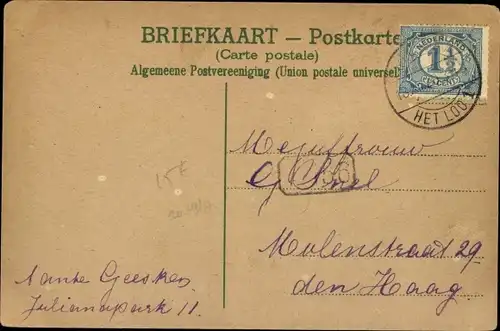 BRIEFKAART — Postkarte
(Carte postale)
Algemeene Postvereeniging (Union postale universel
NEDERLAND
1½
CENT
HET LOO
Mejuffrouw
G. Snel
Molenstraat 29
den Haag
15£
Tante Geesken
Julianapark 11.